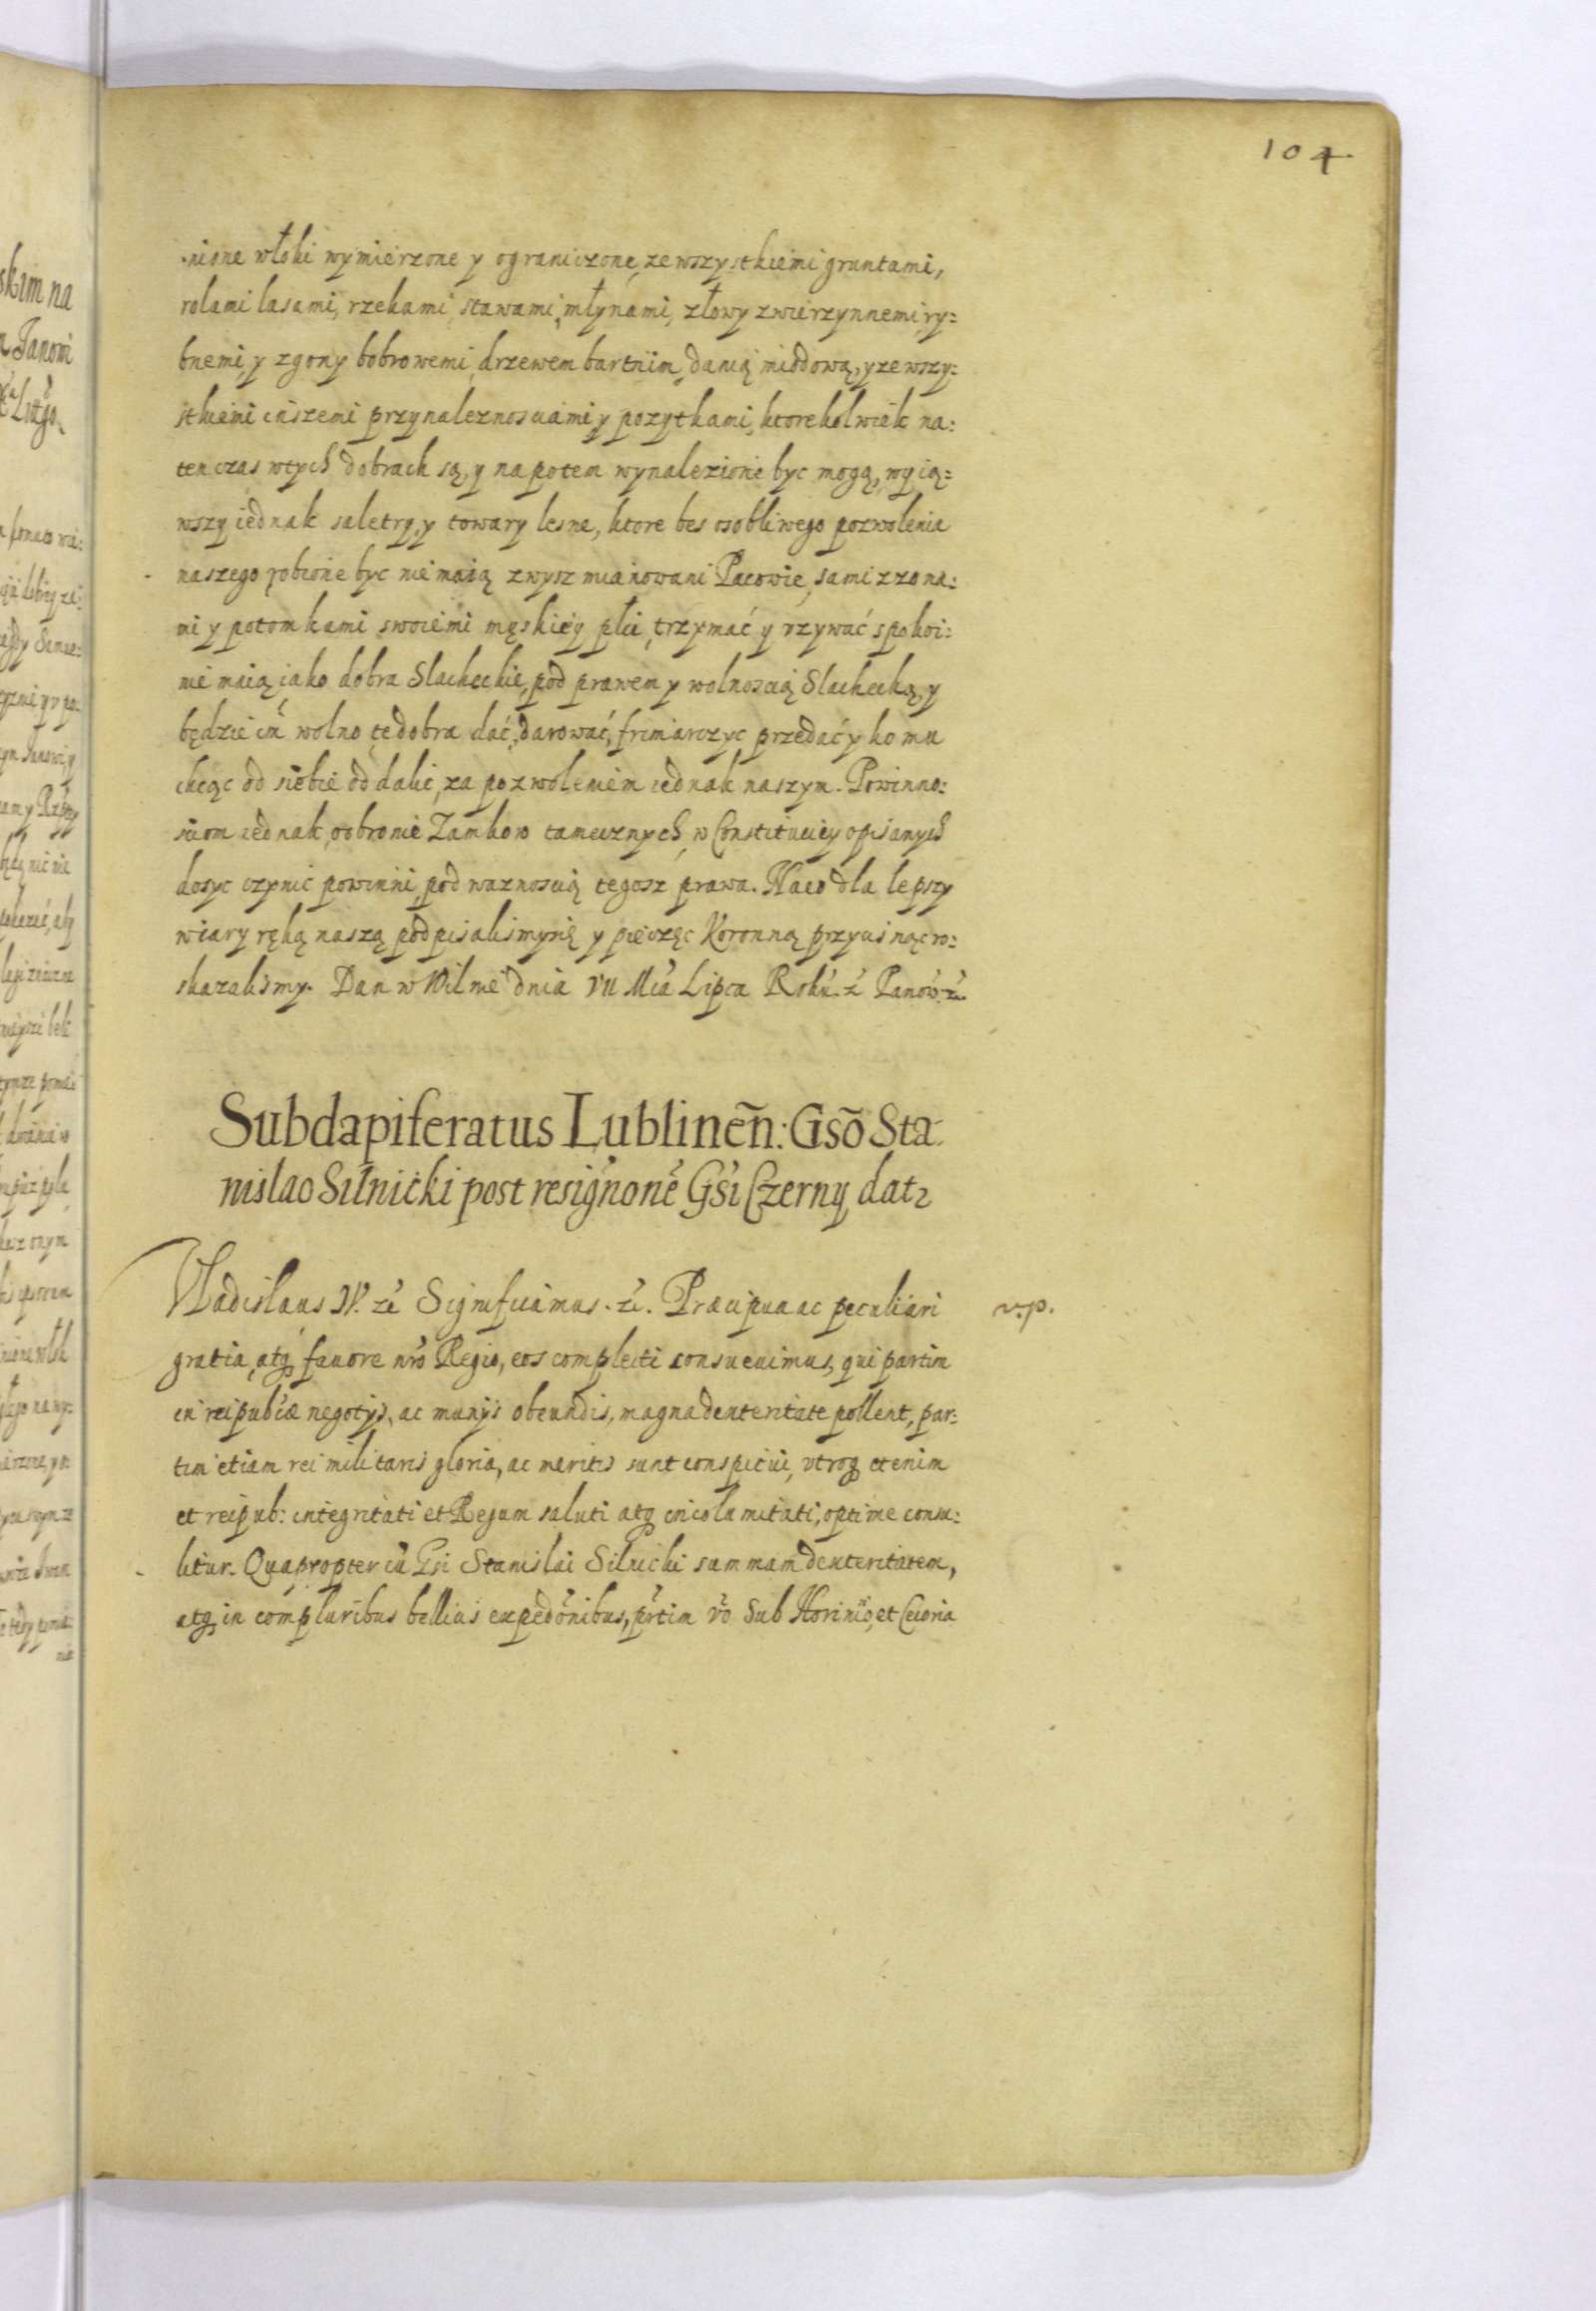 104
nione włoki wymierzone y ograniczone, ze wszystkiemi gruntami,
rolami lasami, rzekami, stawami, młynami, złowy zwierzynnemi, ry:
bnemi, y zgony bobrowemi, drzewem bartnim, danią miodową, y ze wszy:
stkiemi inszemi przynaleznosciami y pozytkami, ktorekolwiek na:
tenczas wtych dobrach są, y napotem wynalezione byc mogą, wyią:
wszy iednak saletry, y towary lesne, ktore bes osobliwego pozwolenia
naszego robione byc nie maią zwysz mianowani Pacowie, sami z zona:
mi y potomkami swoiemi męskiey płci, trzymać y vzywać spokoi:
nie maią iako dobra Slacheckie, pod prawem y wolnoscią Slachecką, y
będzie im̃ wolno te dobra dać, darować, frimarczyc przedać y komu
chcąc od siebie oddalic, za pozwoleniem iednak naszym. Powinno:
sciom iednak, o obronie Zamkow tamecznych, w Constituciey opisanych
dosyc czynic powinni, pod waznoscią tegosz prawa. Naco dla lepszy
wiary ręką naszą podpisalismysię y pieczęc Koronną przycisnąc ro:
skazalismy. Dan w Wilnie dnia VII Mca Lipca Roku. &c. Panow. &c.
Subdapiferatus Lublineñ: Gsõ Sta:
nislao Silnicki post resignone Gsi Czerny dat~
Vladislaus IV. &c Significamus. &c. Præcipua ac peculiari
v.p.
gratia, atq; fauore nrõ Regio, eos complecti consueuimus, qui partim
in reipubcæ negotijs, ac munijs obeundis, magna dexteritate pollent, par:
tim etiam rei militaris gloria, ac meritis sunt conspicui, vtroq; etenim
et reipub: integritati et Regum saluti atq; incolumitati, optime consu:
litur. Quapropter cũ Gsi Stanislai Silnicki summam dexteritatem,
atq; in compluribus bellicis expedonibus, prtim vo sub Horinio, et Cecoria